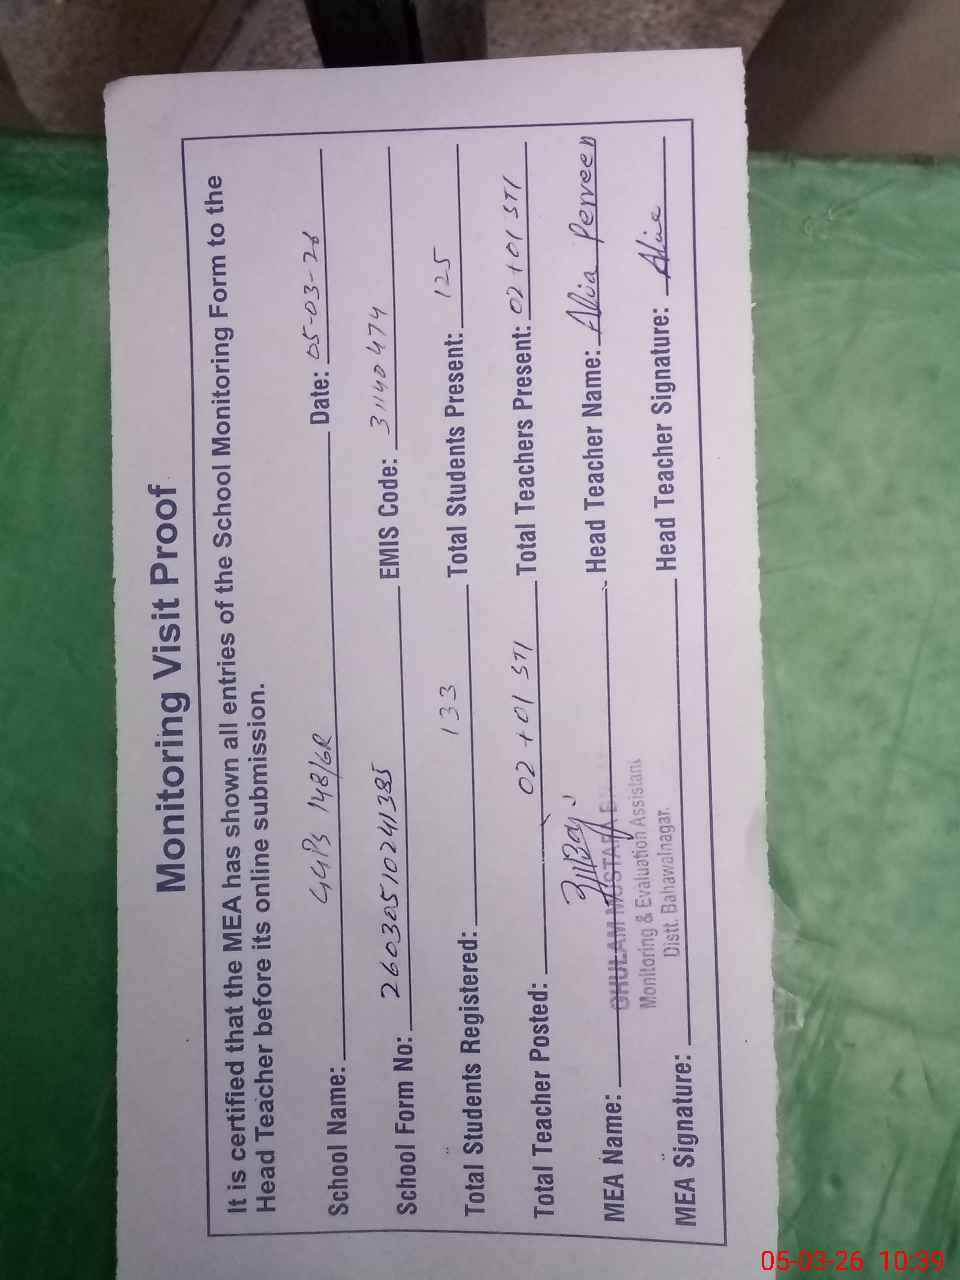 Monitoring Visit Proof
It is certified that the MEA has shown all entries of the School Monitoring Form to the
Head Teacher before its online submission.
School Name: GGPS 148/6R Date: 05-03-26
School Form No: 26030510241385 EMIS Code: 31140474
Total Students Registered: 133 Total Students Present: 125
Total Teacher Posted: 02 + 01 STI Total Teachers Present: 02 + 01 STI
MEA Name: GHULAM MUSTAFA Head Teacher Name: Alvia Perveen
Monitoring & Evaluation Assistant
Distt. Bahawalnagar.
MEA Signature: Head Teacher Signature:
05-03-26 10:39